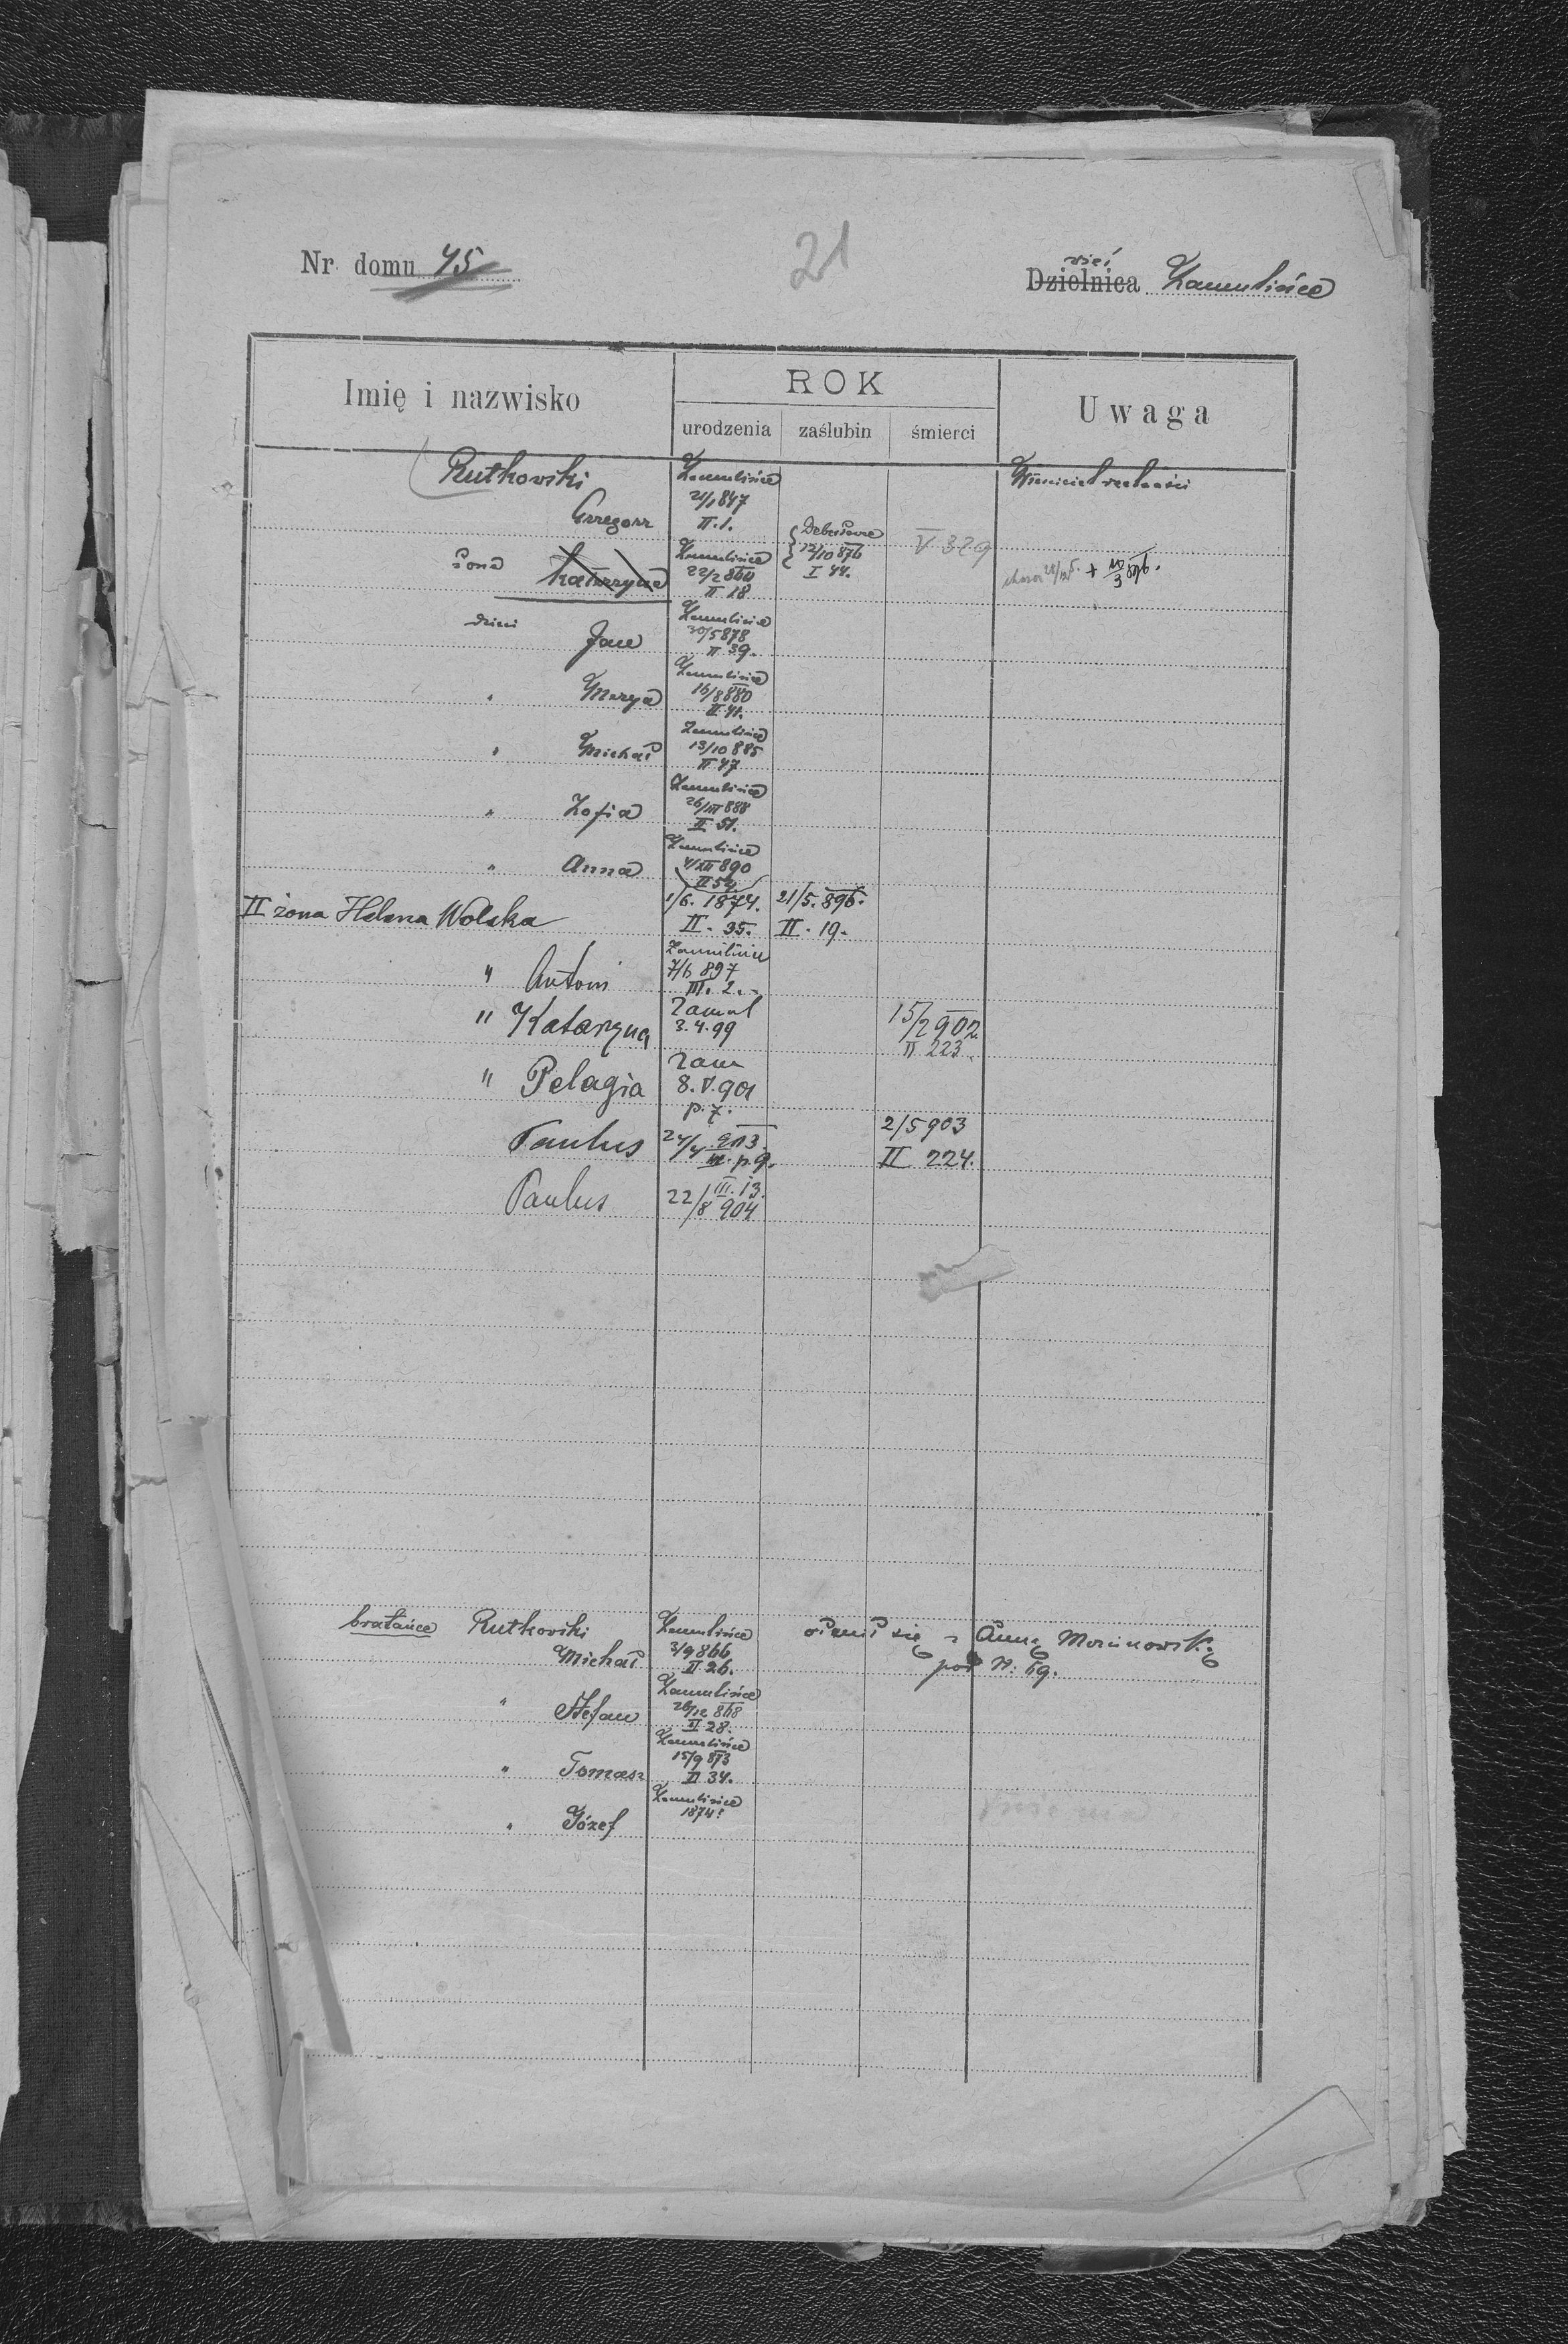 21
Nr. domu 45
wieś
Dzielnica Zamulińce
Imię i nazwisko
ROK
urodzenia zaślubin śmierci
Uwaga
Rutkowski
Grzegorz
Zamulińce
21/1 847
II. 1.
Właściciel realności
V 329
żona Katarzyna
Zamulińce
22/2 860
II 18
12/10 876
I 44.
+ 10/3 896.
dzieci Jan
Zamulińce
30/5 878
II 39.
" Marya
Zamulińce
16/8 880
II 41.
" Michał
Zamulińce
13/10 885
II 47
" Zofia
Zamulińce
26/III 888
II 51.
" Anna
Zamulińce
4/XII 890
II 54.
II żona Helena Wolska
1/6. 1874. 21/5. 896.
II. 35. II. 19.
" Antoni
Zamulińce
7/6 897
III. 2.
" Katarzyna
Zamul
3.4.99
15/2 902.
II 223
" Pelagia
Zam
8.V.901
p. 7.
Paulus
24/4 903
III. p. 9.
2/5 903
II 224.
Paulus
III. 13.
22/8 904
bratańce Rutkowski
Michał
Zamulińce
3/9 866
II 26.
ożenił się z Anną
pod N: 69.
" Stefan
Zamulińce
26/12 868
II 28.
" Tomasz
Zamulińce
15/9 873
II 34.
" Józef
Zamulińce
1874!